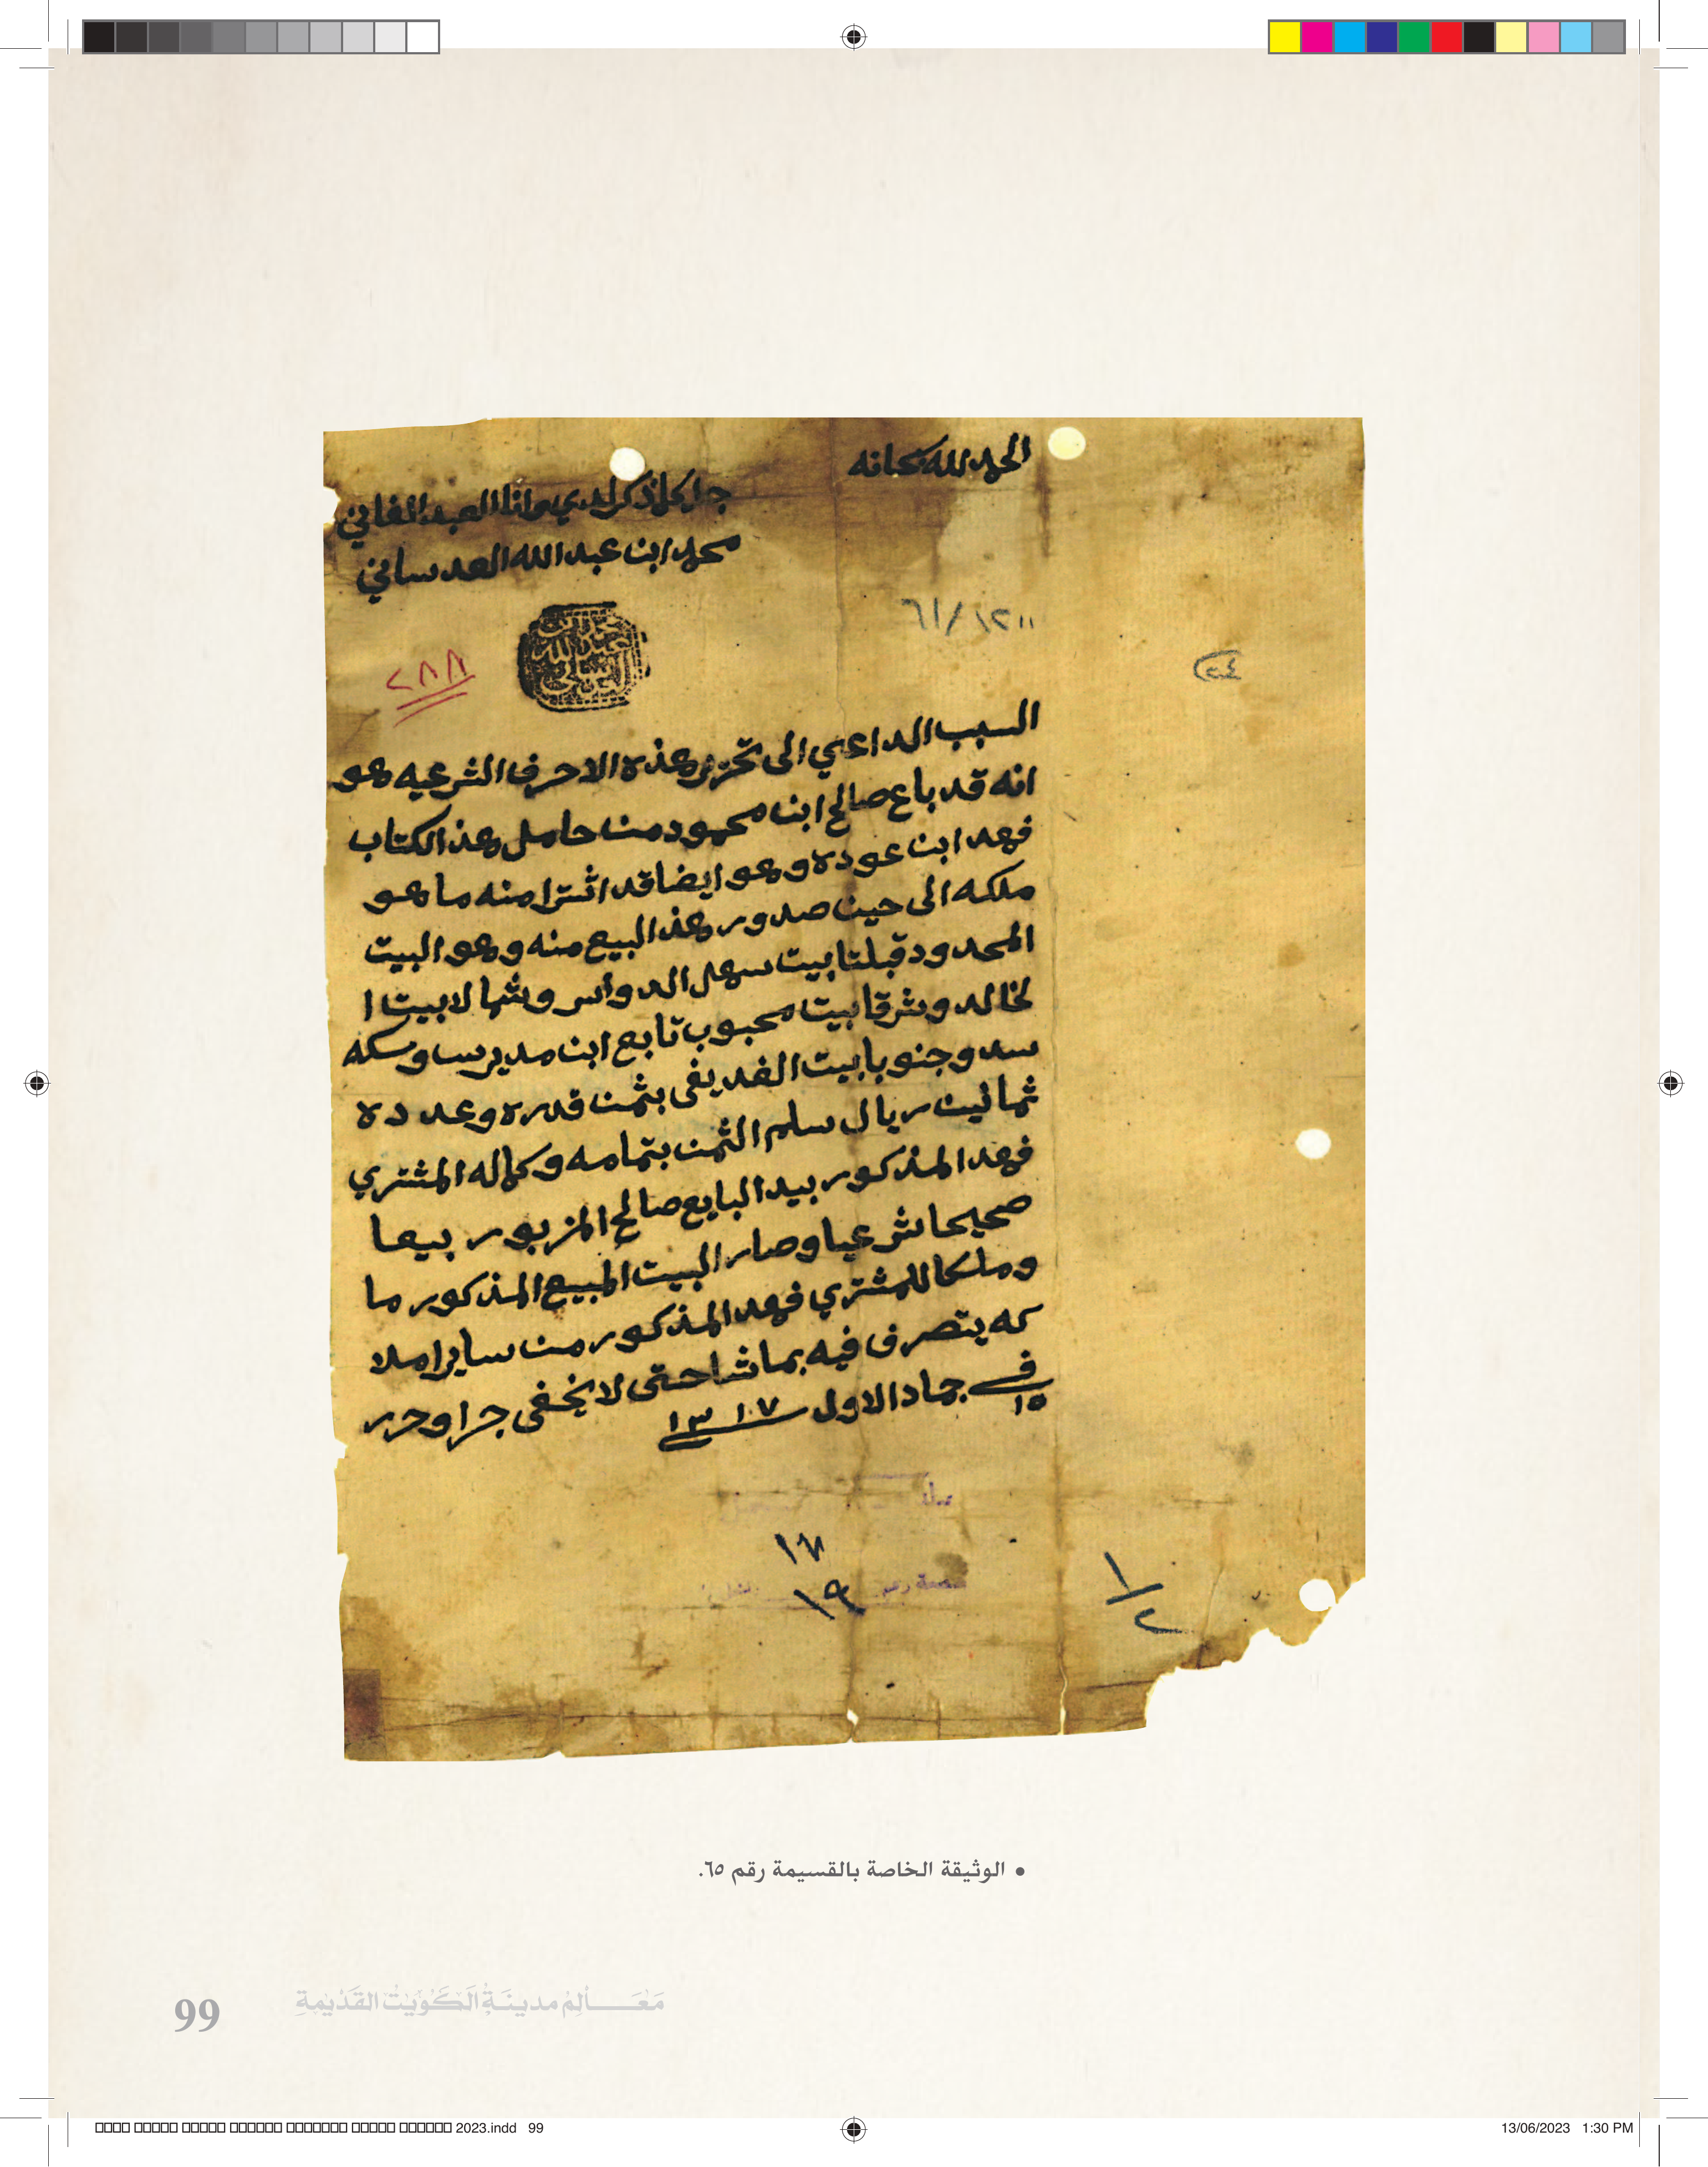 الحمد لله سبحانه
جرا كما ذكر لدي وانا العبد الفاني
محمد ابن عبد الله العدساني
محمد ابن
عبد الله
العدساني
٦١/١٢١١
٢٤
٢٨٨
السبب الداعي الى تحرير هذه الاحرف الشرعيه هو
انه قد باع صالح ابن محمود من حامل هذ الكتاب
فهد ابن عوده وهو ايضا قد اشترا منه ما هو
ملكه الى حين صدور هذ البيع منه وهو البيت
المحدود قبلتا بيت سهل الدواس وشمالا بيت ا
لخالد وشرقا بيت محبوب تابع ابن مديرس وسكه
سد وجنوبا بيت الفديفي بثمن قدره وعدده
ثمانين ريال سلم الثمن بتمامه وكماله المشتري
فهد المذكور بيد البايع صالح المزبور بيعا
صحيحا شرعيا وصار البيت المبيع المذكور ما
وملكا للمشتري فهد المذكور من ساير املا
كه يتصرف فيه بما شا حتى لا يخفى جرا وحرر
في ١٥ جماد الاول ١٣١٧
١٩
١/٢
• الوثيقة الخاصة بالقسيمة رقم ٦٥.
مَعَالِمُ مدينَةِ الكُوَيْتِ القَدْيمةِ
99
2023.indd 99
13/06/2023 1:30 PM